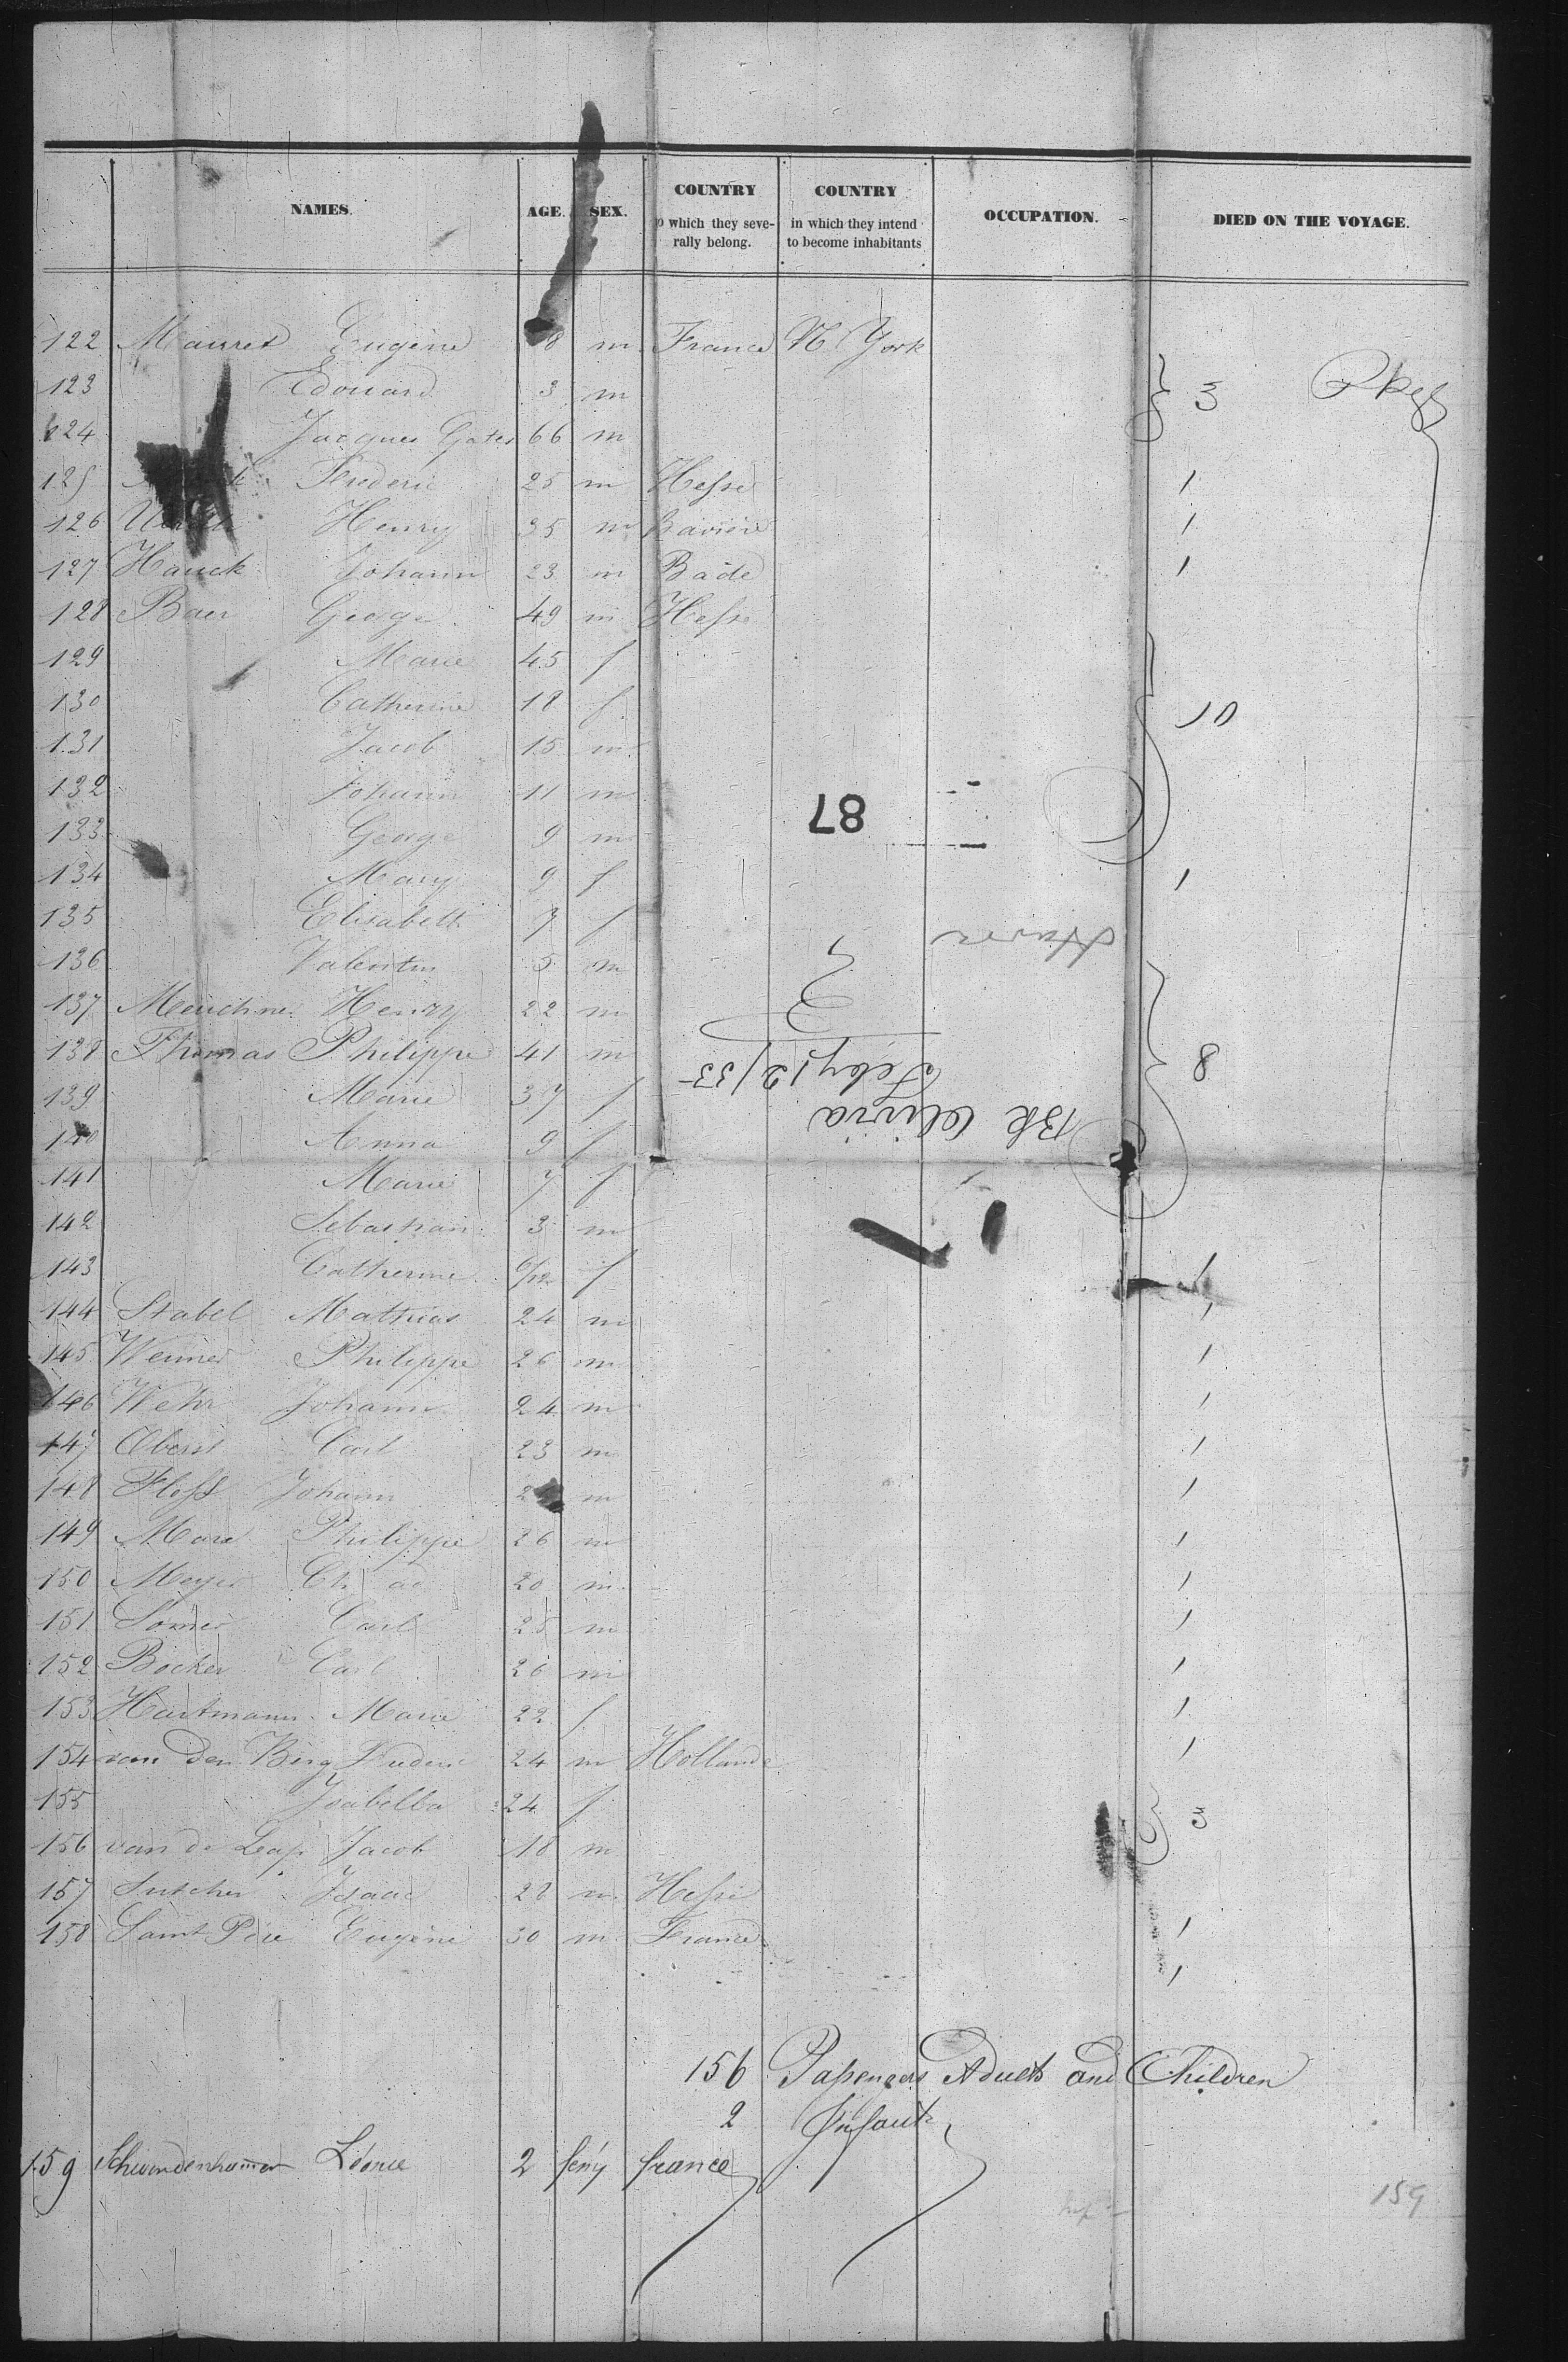 NAMES. AGE. SEX. COUNTRY o which they seve- rally belong. COUNTRY in which they intend to become inhabitants OCCUPATION. DIED ON THE VOYAGE.
122 Eugène 8 m France N. York
123 Edouard 3 m 3 Pkgs
124 Jacques 66 m
125 Frederic 25 m Hesse 1
126 Henry 35 m Bavière 1
127 Hauck Johann 23 m Bade 1
128 Baer George 49 m Hesse
129 Marie 45 f
130 Catherine 18 f 10
131 Jacob 15 m
132 Johann 11 m
87
133 George 9 m
134 Mary 9 f 1
135 Elisabeth 7 f
Havre
136 Valentin 5 m
137 Henry 22 m
138 Thomas Philippe 41 m 8
Feby 12/53
139 Marie 37 f
Bk
140 Anna 9 f
141 Marie 7 f
142 Sebastian 3 m
143 Catherine 6/12 f 1
144 Stabel Mathias 24 m 1
145 Philippe 26 m 1
146 Wehr Johann 24 m 1
147 Oberst Carl 23 m 1
148 Johann 2 m 1
149 Philippe 26 m 1
150 Meyer 20 m 1
151 Carl 25 m 1
152 Becker Carl 26 m 1
153 Hartmann Marie 22 f 1
154 van den Berg 24 m Hollande 1
155 Isabella 24 f
156 van de Jacob 18 m 3
157 Isaac 28 m Hesse
158 Saint Père Eugène 30 m France 1
1
156 Passengers Adults and Children
2 Infants
159 Schwindenhammer Léonce 2 france
159